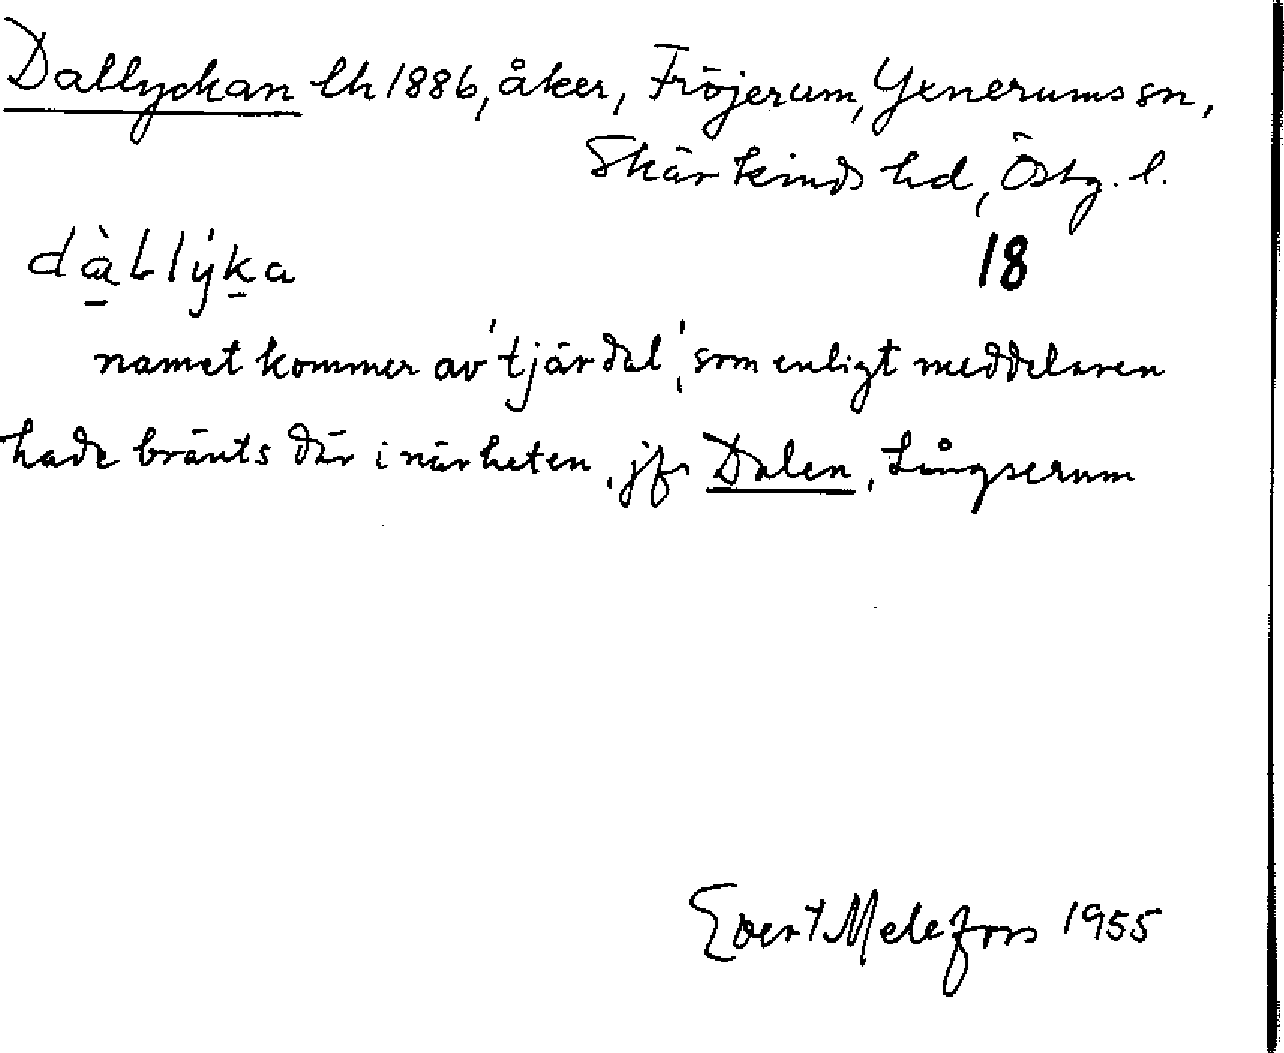 Dallyckan lh 1886, åker, Fröjerum, Yxnerums sn,
Skärkinds hd, Östg. l.
dàLlýka
18
namet kommer av 'tjärdal', som enligt meddelaren
hade bränts där i närheten, jfr Dalen, Långserum
Evert Melefors 1955